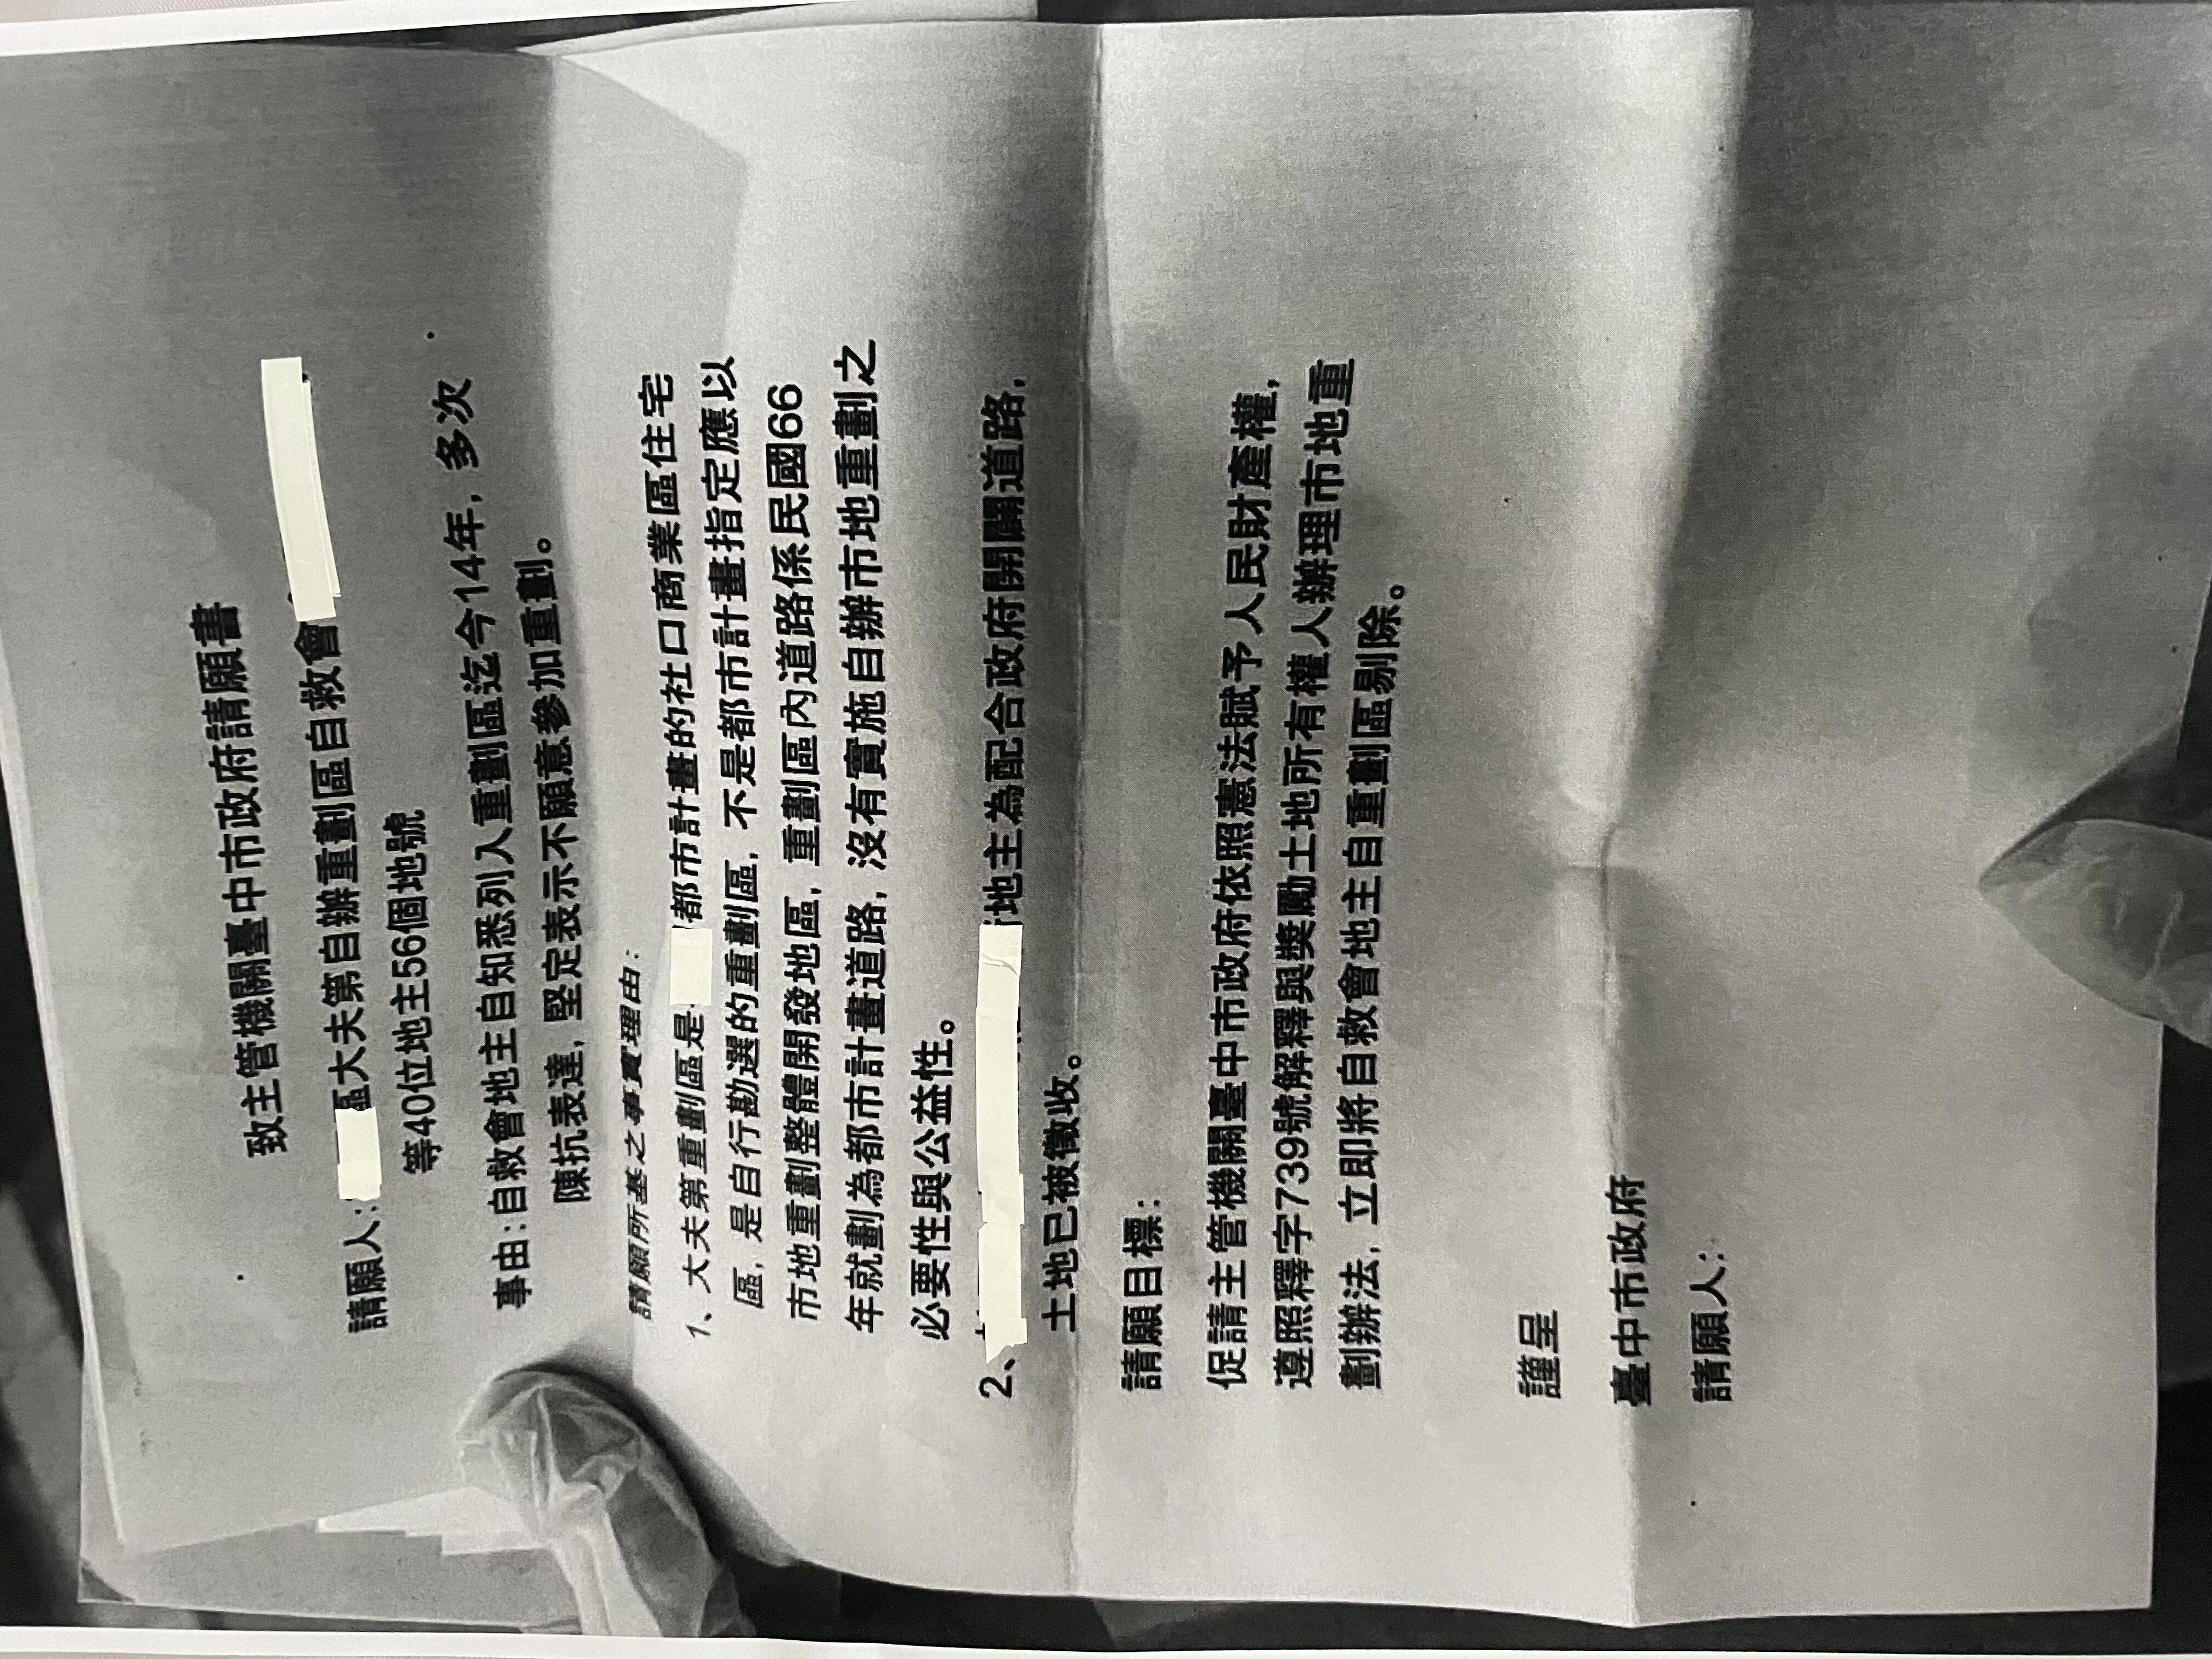 致主管機關臺中市政府請願書
請願人：區大夫第自辦重劃區自救會
等40位地主56個地號
事由：自救會地主自知悉列入重劃區迄今14年，多次
陳抗表達，堅定表示不願意參加重劃。
請願所基之事實理由：
1、大夫第重劃區是都市計畫的社口商業區住宅
區，是自行勘選的重劃區，不是都市計畫指定應以
市地重劃整體開發地區，重劃區內道路係民國66
年就劃為都市計畫道路，沒有實施自辦市地重劃之
必要性與公益性。
2、地主為配合政府開闢道路，
土地已被徵收。
請願目標：
促請主管機關臺中市政府依照憲法賦予人民財產權，
遵照釋字739號解釋與獎勵土地所有權人辦理市地重
劃辦法，立即將自救會地主自重劃區剔除。
謹呈
臺中市政府
請願人：